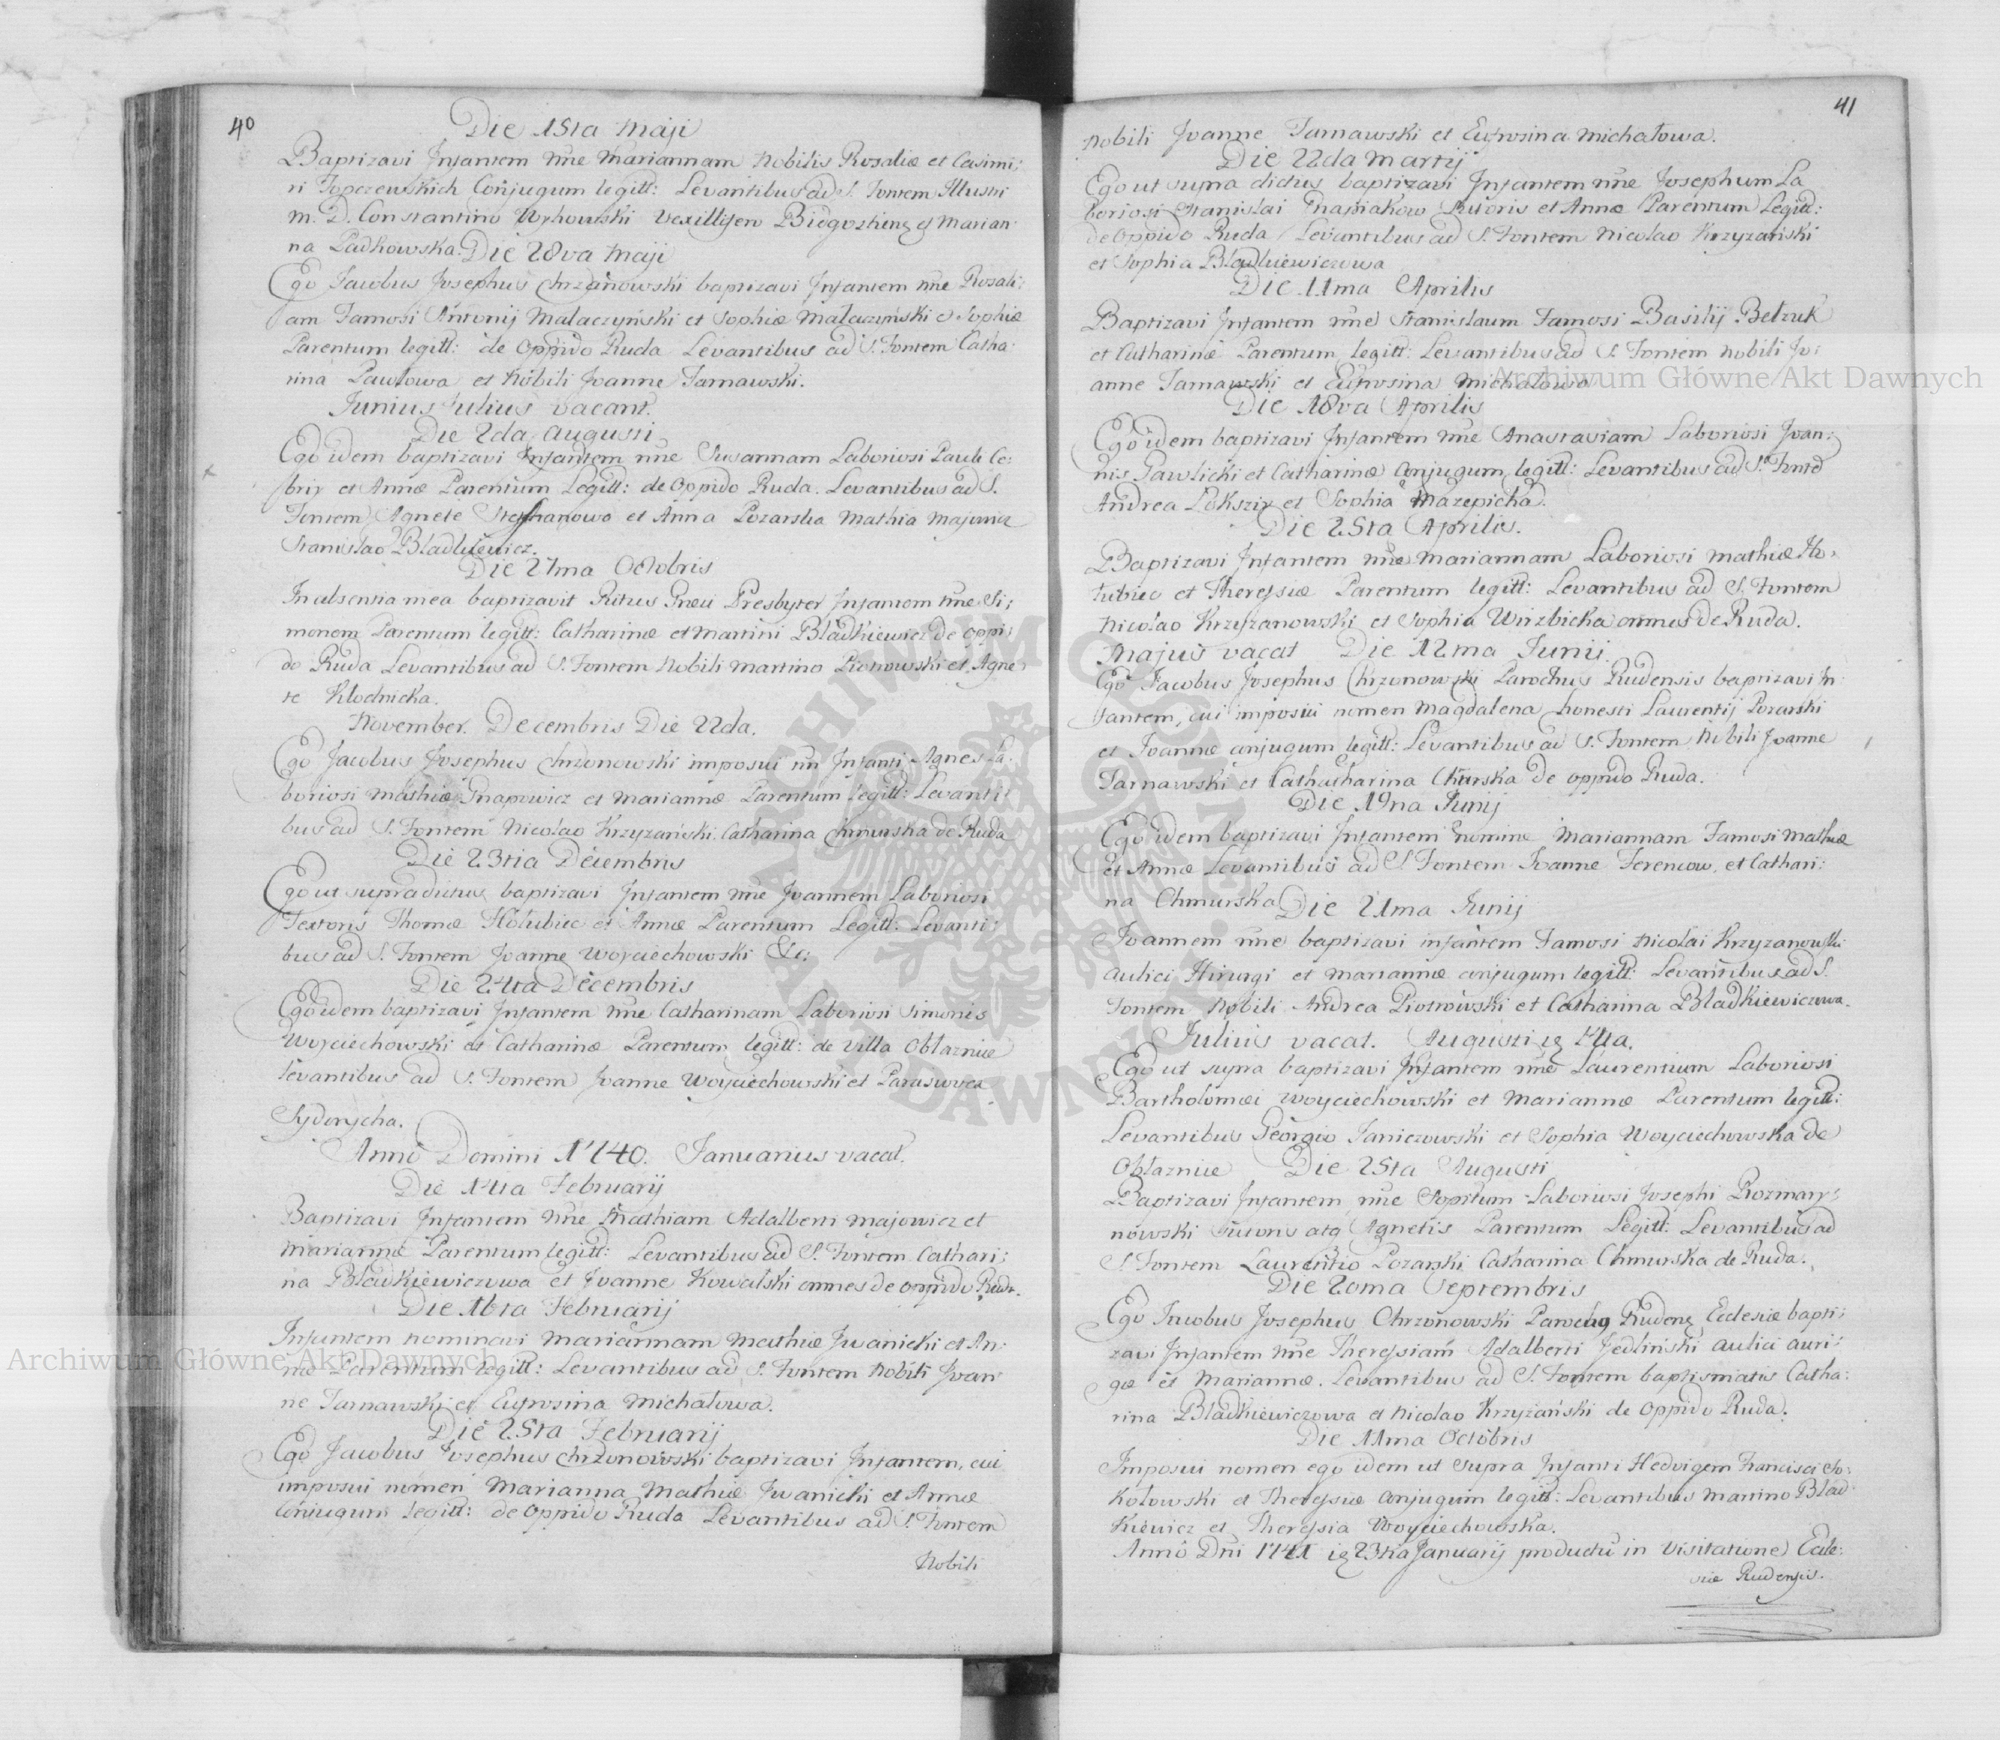 40
Die 15ta Maji
Baptizavi Infantem nne Mariannam Nobilis Rosaliæ et Casimi:
ri Topczewskich Conjugum legitt: Levantibus ad S. Fontem Illustri
M. D. Constantino Vexillifero et Marian
na Die 28va Maji
Ego Jacobus Josephus Chrzanowski baptizavi Infantem nne Rosali:
am Famosi Antonij Malaczyński et Sophiæ Malaczyński et Sophiæ
Parentum legitt: de Oppido Ruda Levantibus ad S. Fontem Catha:
rina Pawłowa et Nobili Joanne Tarnawski.
Junius Julius vacant.
Die 2da Augusti
Ego idem baptizavi Infantem nne Susannam Laboriosi Pauli Ce:
bry et Annæ Parentum Legitt: de Oppido Ruda. Levantibus ad S.
Fontem Agnete Stephanowa et Anna Pozarska Mathia Majowicz
Stanislao Bladkiewicz.
Die 27ma Octobris
In absentia mea baptizavit Ritus Græci Presbyter Infantem nne Si:
monem Parentum legitt: Catharinæ et Martini Bladkiewicz de Oppi:
do Ruda Levantibus ad S. Fontem Nobili Martino Piotrowski et Agne
te Kłodnicka.
November. Decembris Die 22da.
Ego Jacobus Josephus Chrzonowski imposui nn Infanti Agnes La:
boriosi Mathiæ Gnapowicz et Mariannæ Parentum legitt: Levanti:
bus ad S. Fontem Nicolao Krzyzański Catharina Chmurska de Ruda
Die 23tia Decembris
Ego ut supradictus baptizavi Infantem nne Joannem Laboriosi
Textoris Thomæ Hołubiec et Annæ Parentum Legitt: Levanti:
bus ad S. Fontem Joanne Woyciechowski &c:
Die 24ta Decembris
Ego idem baptizavi Infantem nne Catharinam Laboriosi Simonis
Woyciechowski et Catharinæ Parentum legitt: de Villa Obłaznice
levantibus ad S. Fontem Joanne Woyciechowski et Paraswvca
Sydorycha.
Anno Domini 1740. Januarius vacat.
Die 14ta Februarij
Baptizavi Infantem nne Mathiam Adalberti Majowicz et
Mariannæ Parentum legitt: Levantibus ad S. Fontem Cathari:
na Bladkiewiczowa et Joanne Kowalski omnes de oppido Ruda.
Die 16ta Februarij
Infantem nominavi Mariannam Mathiæ Iwanicki et An:
næ Parentum legitt: Levantibus ad S. Fontem Nobili Joan
ne Tarnawski et Eufrosina Michałowa.
Die 25ta Februarij
Ego Jacobus Josephus Chrzonowski baptizavi Infantem, cui
imposui nomen Marianna Mathiæ Iwanicki et Annæ
Conjugum legitt: de Oppido Ruda Levantibus ad S. Fontem
Nobili
41
Nobili Joanne Tarnawski et Eufrosina Michałowa.
Die 22da Martij
Ego ut supra dictus baptizavi Infantem nne Josephum La
boriosi Stanislai Sutoris et Annæ Parentum Legitt:
de Oppido Ruda Levantibus ad S. Fontem Nicolao Krzyzański
et Sophia Bladkiewiczowa
Die 11ma Aprilis
Baptizavi Infantem nne Stanislaum Famosi Basilij Betzuk
et Catharinæ Parentum legitt: Levantibus ad S. Fontem Nobili Jo:
anne Tarnawski et Eufrosina Michałowa
Die 18va Aprilis
Ego idem baptizavi Infantem nne Anastasiam Laboriosi Joan:
nis Pawlicki et Catharinæ Conjugum legitt: Levantibus ad S. Fonte
Andrea et Sophia Mazepicha.
Die 25ta Aprilis.
Baptizavi Infantem nne Mariannam Laboriosi Mathiæ Ho:
łubiec et Theressiæ Parentum legitt: Levantibus ad S. Fontem
Nicolao Krzyzanowski et Sophia Wirzbicka omnes de Ruda.
Majus vacat Die 12ma Junii.
Ego Jacobus Josephus Chrzonowski Parochus Rudensis baptizavi In:
fantem, cui imposui nomen Magdalena honesti Laurentij Pozarski
et Joannæ conjugum legitt: Levantibus ad S. Fontem Nobili Joanne
Tarnawski et Cathatharina Churska de oppido Ruda.
Die 19na Junij
Ego idem baptizavi Infantem nomine Mariannam Famosi Mathiæ
et Annæ Levantibus ad S Fontem Joanne Ferencow, et Cathari:
na Chmurska Die 21ma Junij
Joannem nne baptizavi infantem Famosi Nicolai Krzyzanowski
aulici Hirurgi et Mariannæ conjugum legitt: Levantibus ad S.
Fontem Nobili Andrea Piotrowski et Catharina Bladkiewiczowa.
Julius vacat. Augusti 14ta.
Ego ut supra baptizavi Infantem nne Laurentium Laboriosi
Bartholomæi Woyciechowski et Mariannæ Parentum legitt:
Levantibus Georgio Janiczowski et Sophia Woyciechowska de
Obłaznice Die 25ta Augusti
Baptizavi Infantem nne Laboriosi Josephi Rozmary:
nowski Sutoris atq Agnetis Parentum Legitt: Levantibus ad
S. Fontem Laurentio Pozarski Catharina Chmurska de Ruda.
Die 20ma Septembris
Ego Jacobus Josephus Chrzonowski Ecclesiæ bapti:
zavi Infantem nne Theressiam Adalberti Jedliński aulici auri:
gæ et Mariannæ. Levantibus ad S. Fontem baptismatis Catha:
rina Bladkiewiczowa et Nicolao Krzyżański de Oppido Ruda.
Die 11ma Octobris
Imposui nomen ego idem ut supra Infanti Hedvigem Francisci So:
kołowski et Theressiæ conjugum legitt: Levantibus Martino Blad
kiewicz et Theressia Woyciechowska.
Anno Dni 1741 23tia Januarij productu in Visitatione Eccle:
siæ Rudensis.
Archiwum Główne Akt Dawnych
Archiwum Główne Akt Dawnych
ARCHIWUM GŁÓWNE AKT DAWNYCH